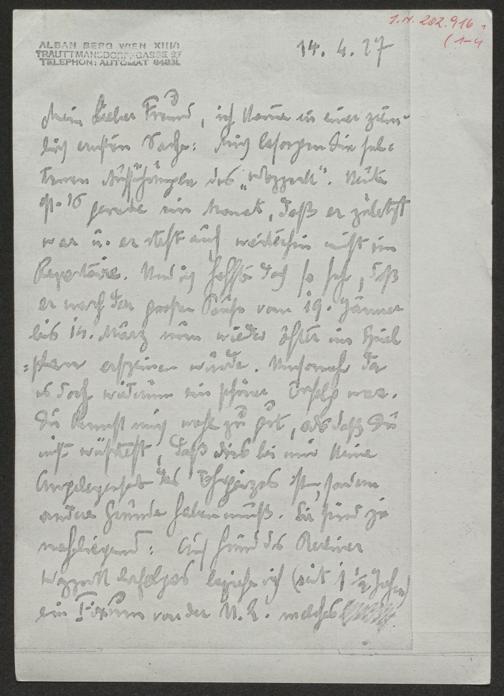 ALBAN BERG WIEN XIII/1
TRAUTTMANSDORFFGASSE 27
TELEPHON: AUTOMAT 84831
I.N. 202.916
(1-4
14. 4. 27
Mein lieber Freund, ich komme in einer ziem-
lich ernsten Sache: Mich besorgen die sel-
tenen Aufführungen des "Wozzeck". Heute
ist's gerade ein Monat, daß er zuletzt
war u. er steht auch weiterhin nicht im
Repertoire. Und ich hoffte doch so sehr, daß
er nach der großen Pause vom 19. Jänner
bis 14. März nun wieder öfter im Spiel
=plan erscheinen würde. Umsomehr da
es doch wiederum ein schöner Erfolg war.
Du kennst mich wohl zu gut, als daß Du
nicht wüßtest, daß dies bei mir keine
Angelegenheit des Ehrgeizes ist, sondern
andere Gründe haben muß. Sie sind ja
naheliegend: Auf Grund des Berliner
Wozzeckerfolges beziehe ich (seit 1 ½ Jahr)
ein Fixum von der U. E. welches